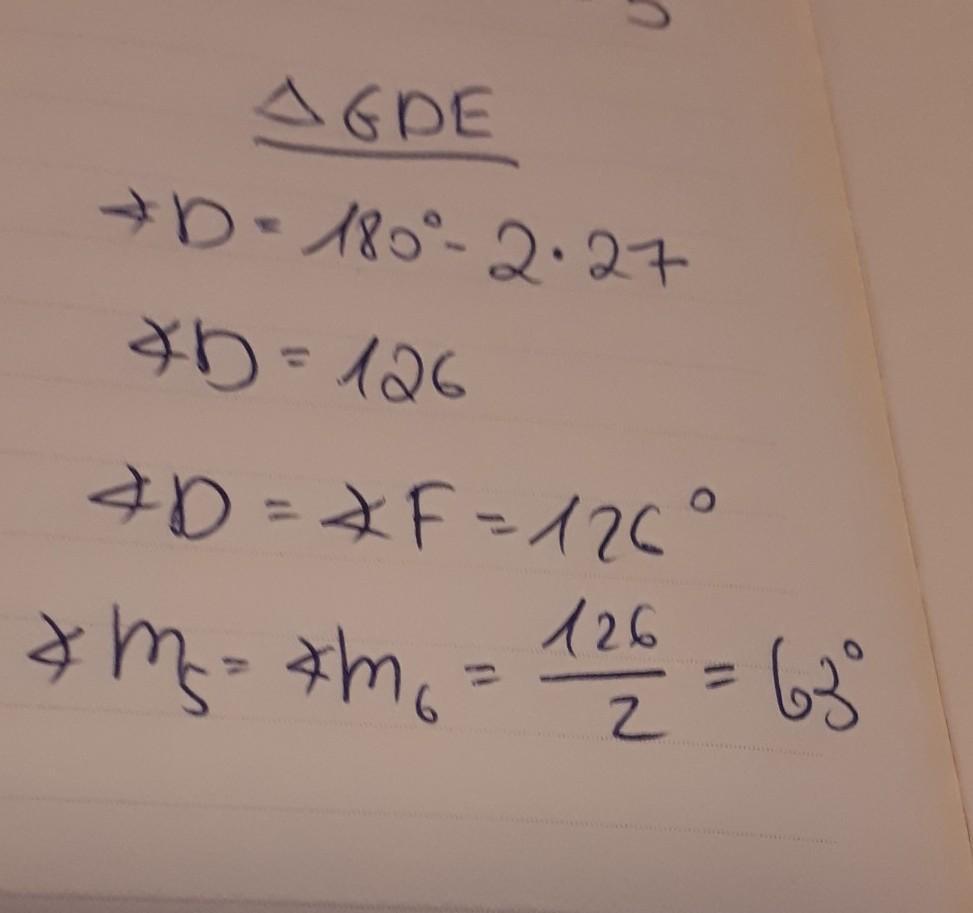 △GDE
∢D = 180° - 2·27
∢D = 126
∢D = ∢F = 126°
∢m₅ = ∢m₆ = 126/2 = 63°